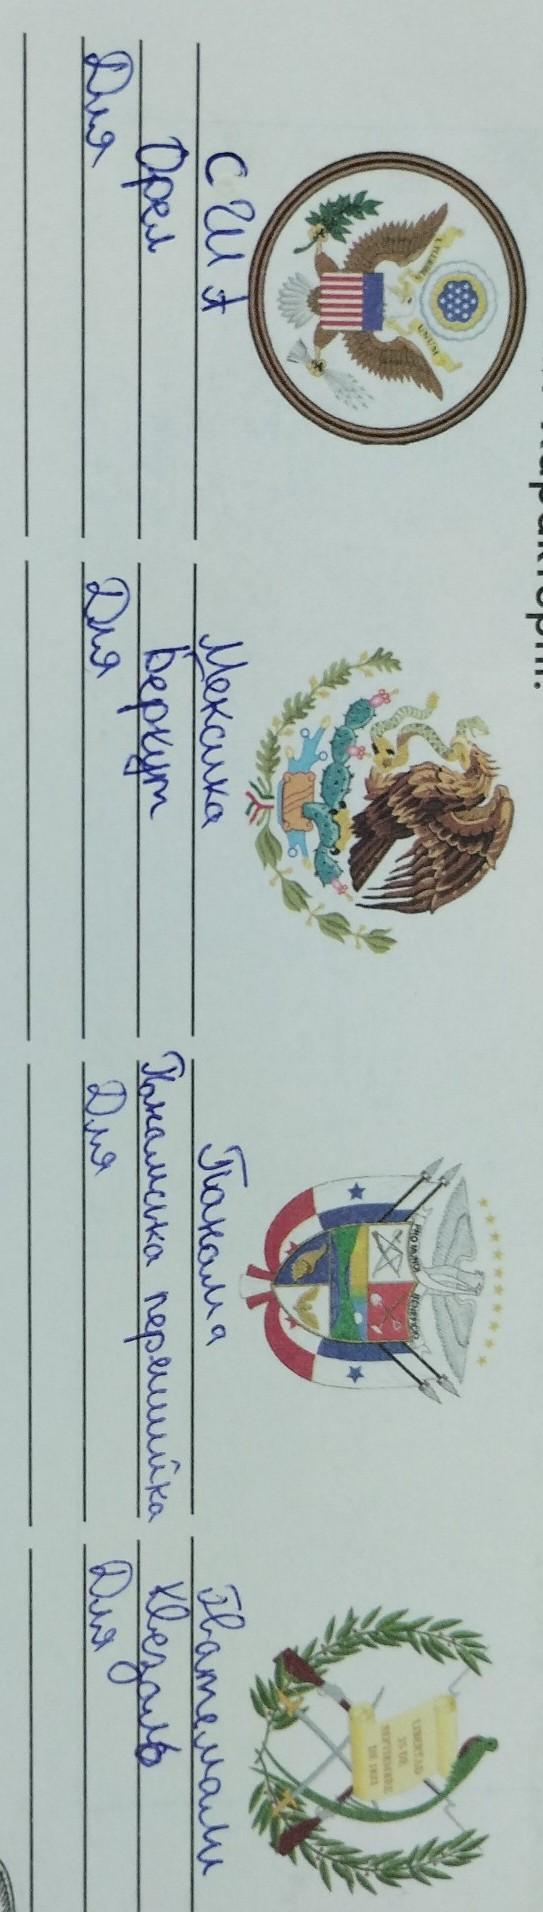 E PLURIBUS UNUM
PRO MUNDI BENEFICIO
LIBERTAD
15 DE
SEPTIEMBRE
DE 1821
США
Орел
Для
Мексика
Беркут
Для
Панама
Панамська перешийка
Для
Гватемали
Квезаль
Для